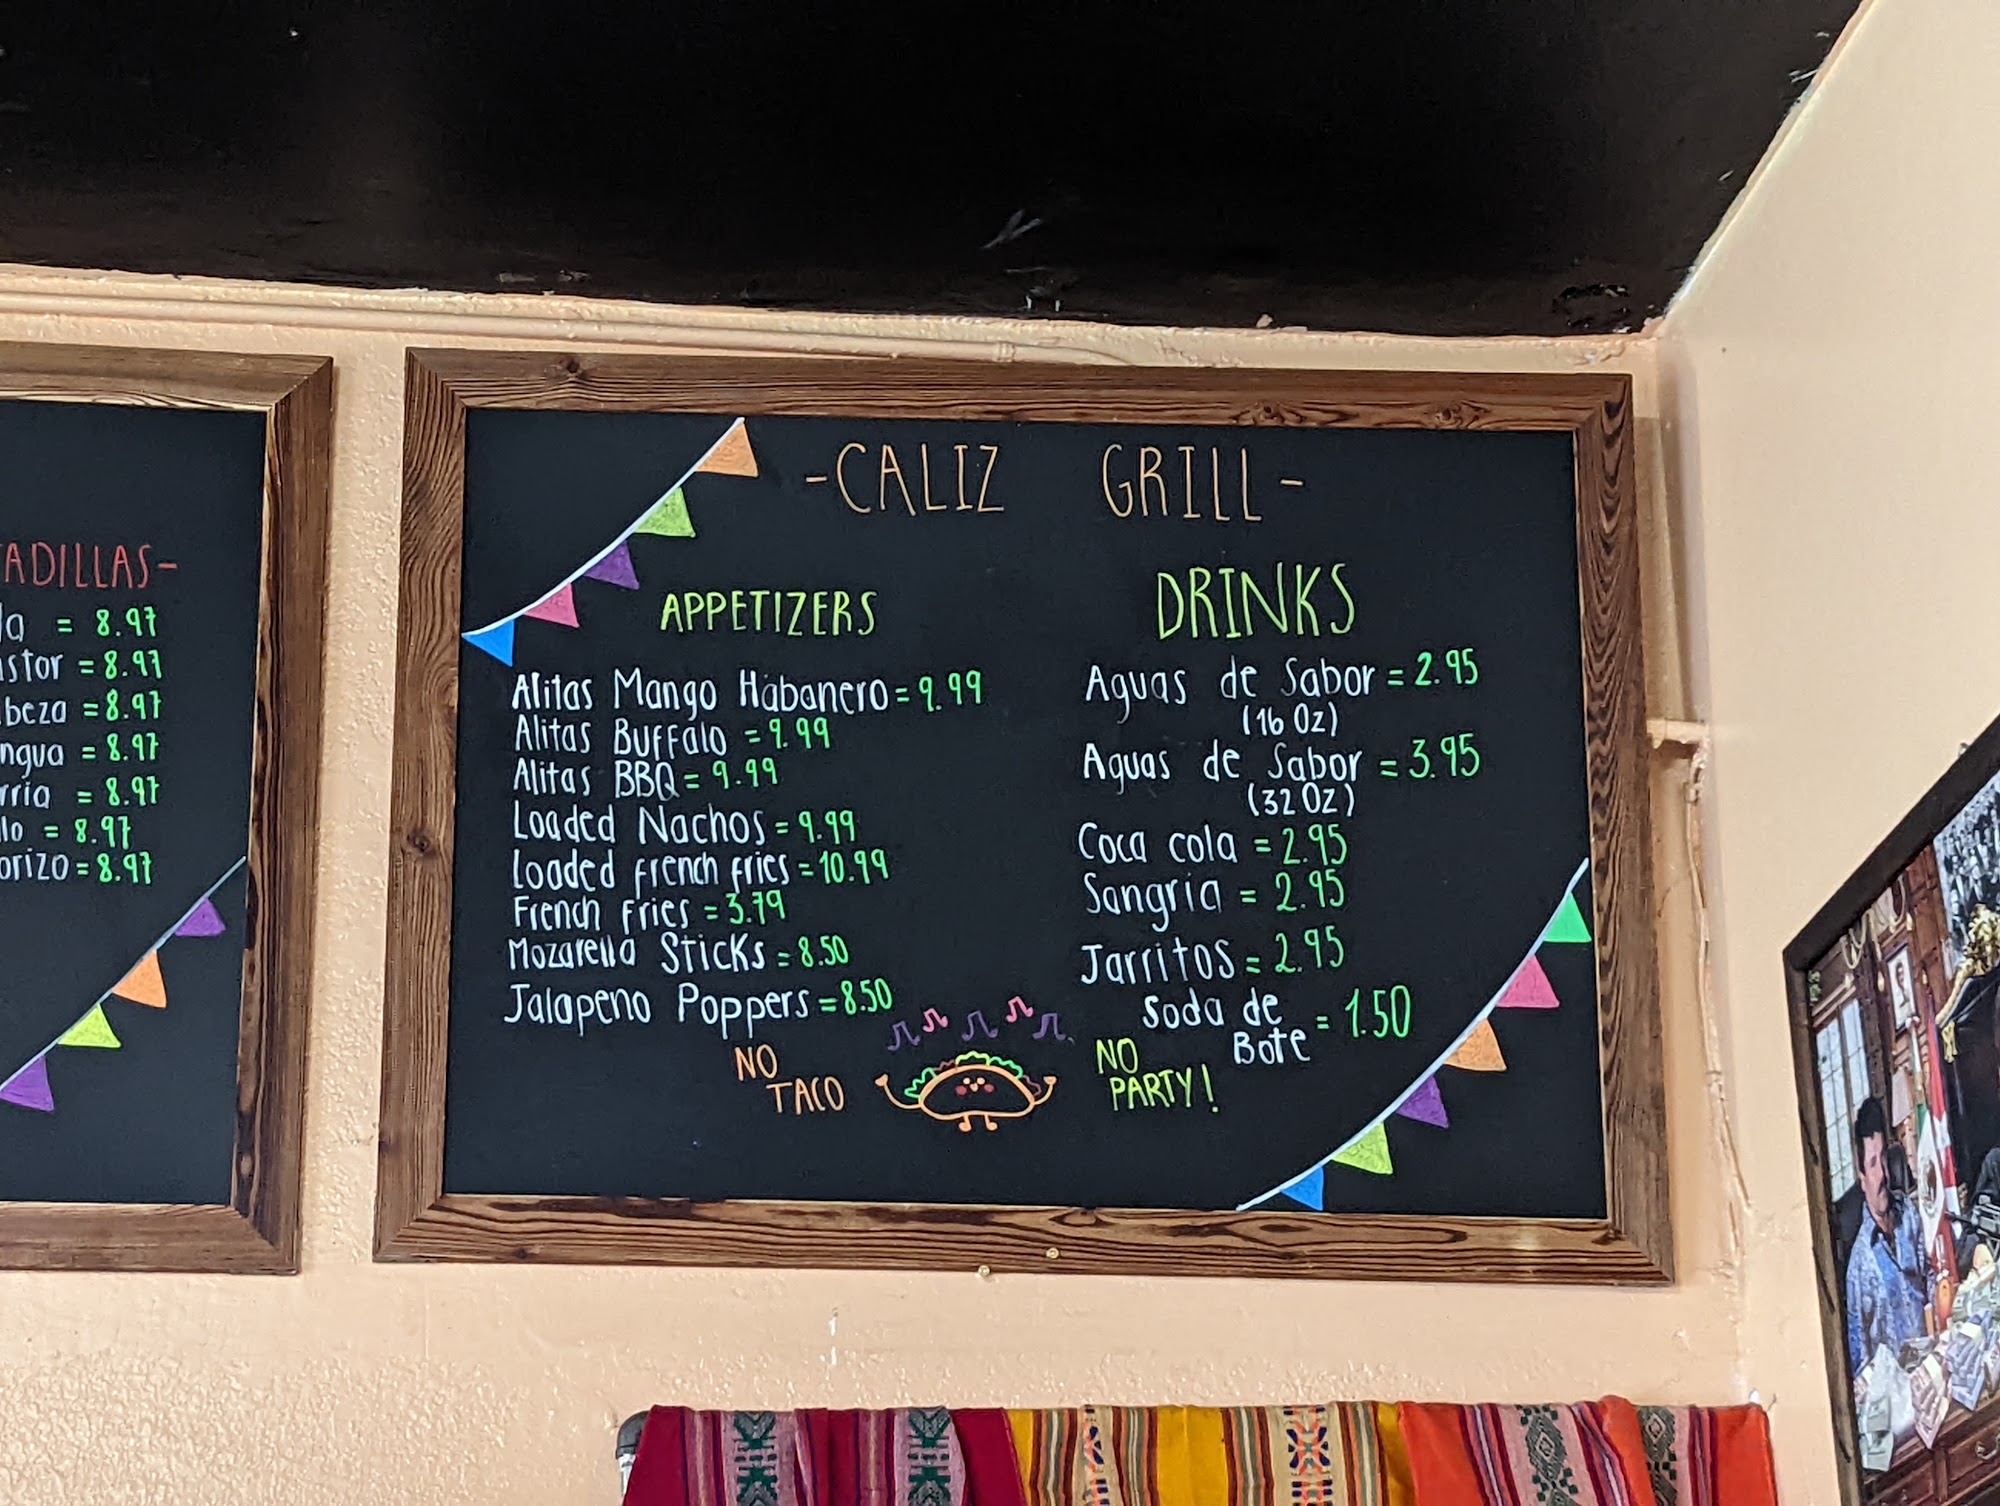 = 8.97
= 8.97
= 8.97
= 8.97
= 8.97
= 8.97
= 8.97
-CALIZ GRILL-
APPETIZERS
Alitas Mango Habanero = 9.99
Alitas Buffalo = 9.99
Alitas BBQ = 9.99
Loaded Nachos = 9.99
Loaded french fries = 10.99
French fries = 3.79
Mozarella Sticks = 8.50
Jalapeno Poppers = 8.50
DRINKS
Aguas de Sabor = 2.95
(16 Oz)
Aguas de Sabor = 3.95
(32 Oz)
Coca cola = 2.95
Sangria = 2.95
Jarritos = 2.95
Soda de
Bote = 1.50
NO
TACO
NO
PARTY!